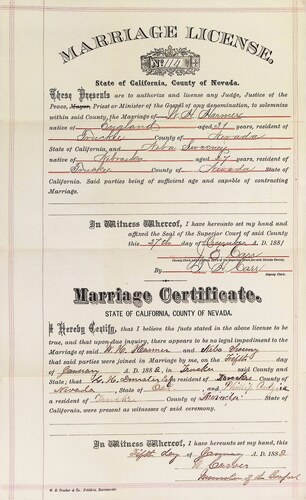 MARRIAGE LICENSE,
No. 114
State of California, County of Nevada.
These Presents are to authorize and license any Judge, Justice of the
Peace, Mayor, Priest or Minister of the Gospel of any denomination, to solemnize
within said County, the Marriage of W. H. Harmer
native of England aged 31 years, resident of
Truckee County of Nevada
State of California, and Neba Sweeney
native of Nebraska aged 27 years, resident of
Truckee County of Nevada State of
California. Said parties being of sufficient age and capable of contracting
Marriage.
In Witness Whereof, I have hereunto set my hand and
affixed the Seal of the Superior Court of said County
this 27th day of December A. D. 1881
J. E. Carr
By Carr
Deputy Clerk.
Marriage Certificate.
STATE OF CALIFORNIA, COUNTY OF NEVADA.
I Hereby Certify, that I believe the facts stated in the above license to be
true, and that upon due inquiry, there appears to be no legal impediment to the
Marriage of said W. H. Harmer and
that said parties were joined in Marriage by me, on the Fifth day
of January A. D. 1882, in Truckee said County and
State; that a resident of Truckee County of
Nevada, State of Cal and
a resident of Truckee County of Nevada State of
California, were present as witnesses of said ceremony.
In Witness Whereof, I have hereunto set my hand, this
Fifth day of January 1882